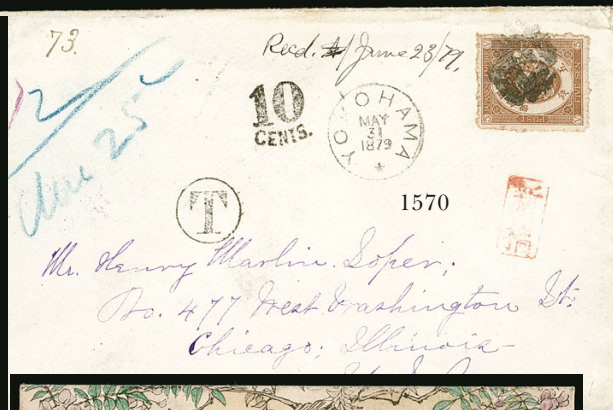 73.
Recd. 4/June 23/79.
12
25
10
CENTS.
YOKOHAMA
MAY
31
1879
T
1570
Mr. Henry Martin Loper,
No. 477 West Washington St.
Chicago, Illinois
U.S.A.